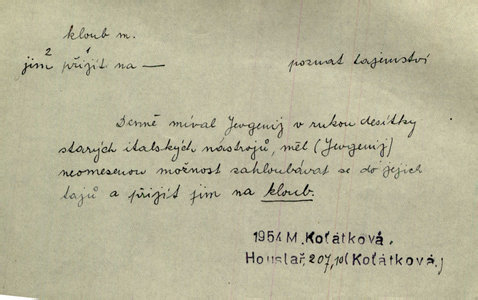 kloub m.
jim² přijít¹ na — poznat tajemství
Denně míval Jevgenij v rukou desítky
starých italských nástrojů, měl (Jevgenij)
neomesenou možnost zahloubávat se do jejich
tajů a přijít jim na kloub.
1954 M. Koťátková.
Houslař, 207, 10 (Koťátková.)